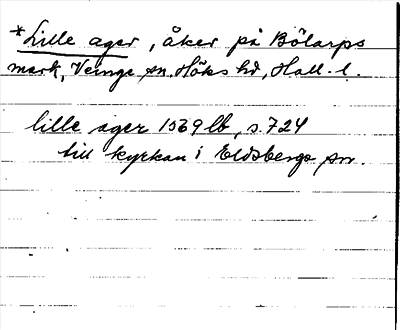 *Lille ager, åker på Bölarps
mark, Veinge sn. Höks hd, Hall. l.
lille ager 1569 lb, s. 724
till kyrkan i Eldsberga sn.